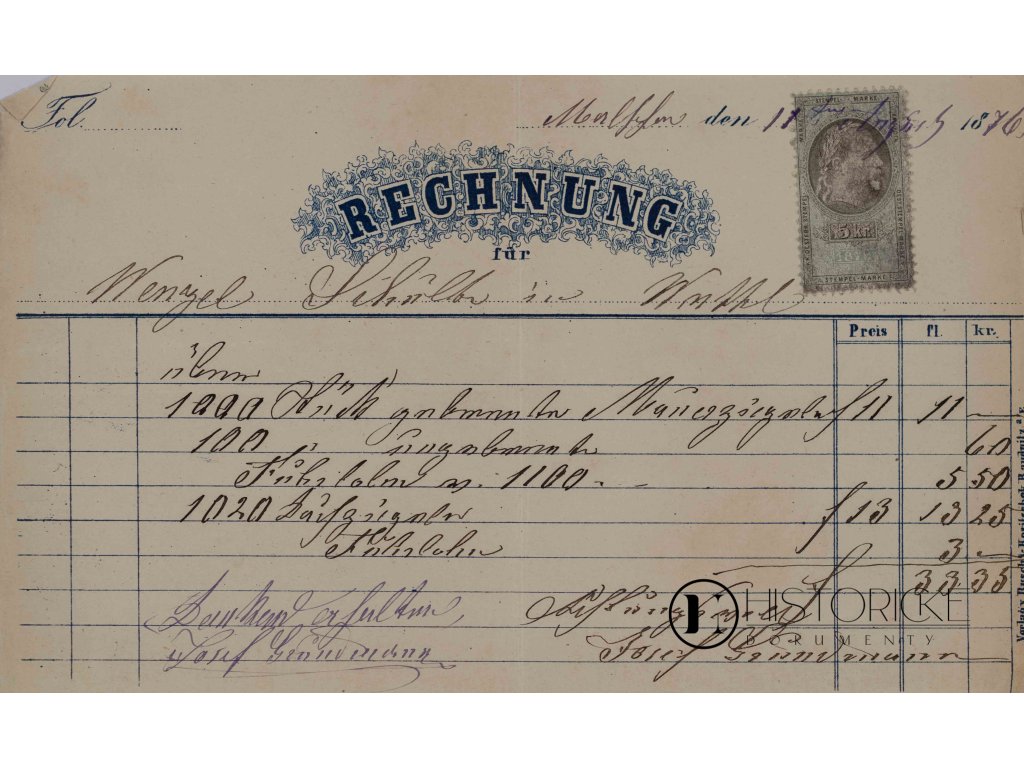 Fol.
den 11 ten 1876
STEMPEL - MARKE
5 kr.
STEMPEL-MARKE
RECHNUNG
für
Wenzel in
Preis fl. kr.
über
1000 Stück gebrannte Mauerziegeln f 11 11 —
100 " ungebrannte 60
Fuhrlohn v. 1100 - - 5 50
1020 Dachziegeln f 13 13 25
Fuhrlohn 3 —
f 33 35
HISTORICKÉ
DOKUMENTY
Dankend erhalten
Josef Gründmann
Josef Gründmann